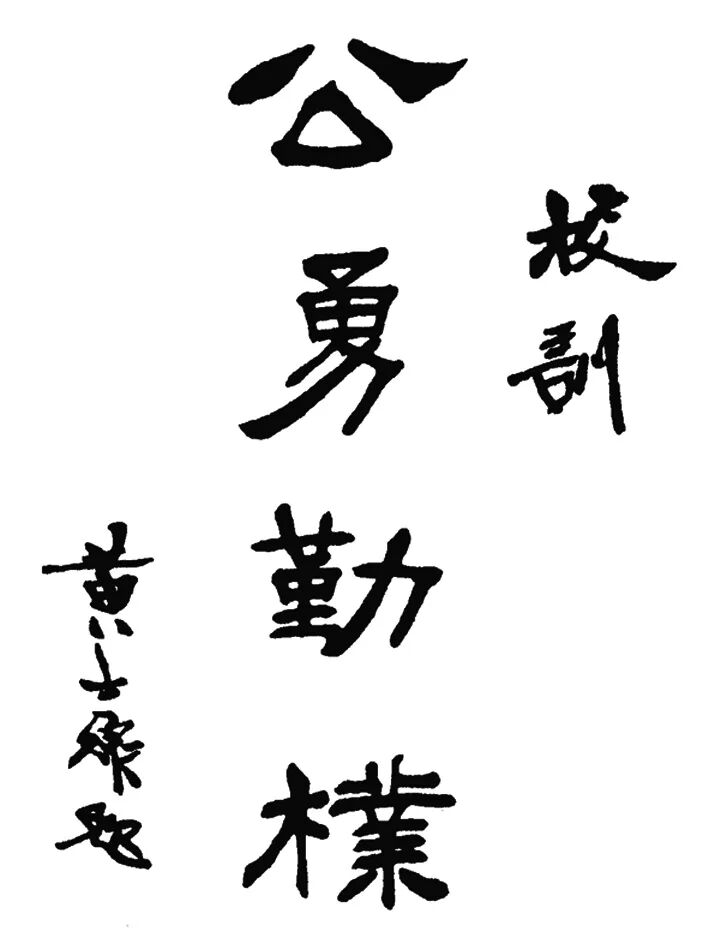 校訓
公勇勤樸
黄士衡題